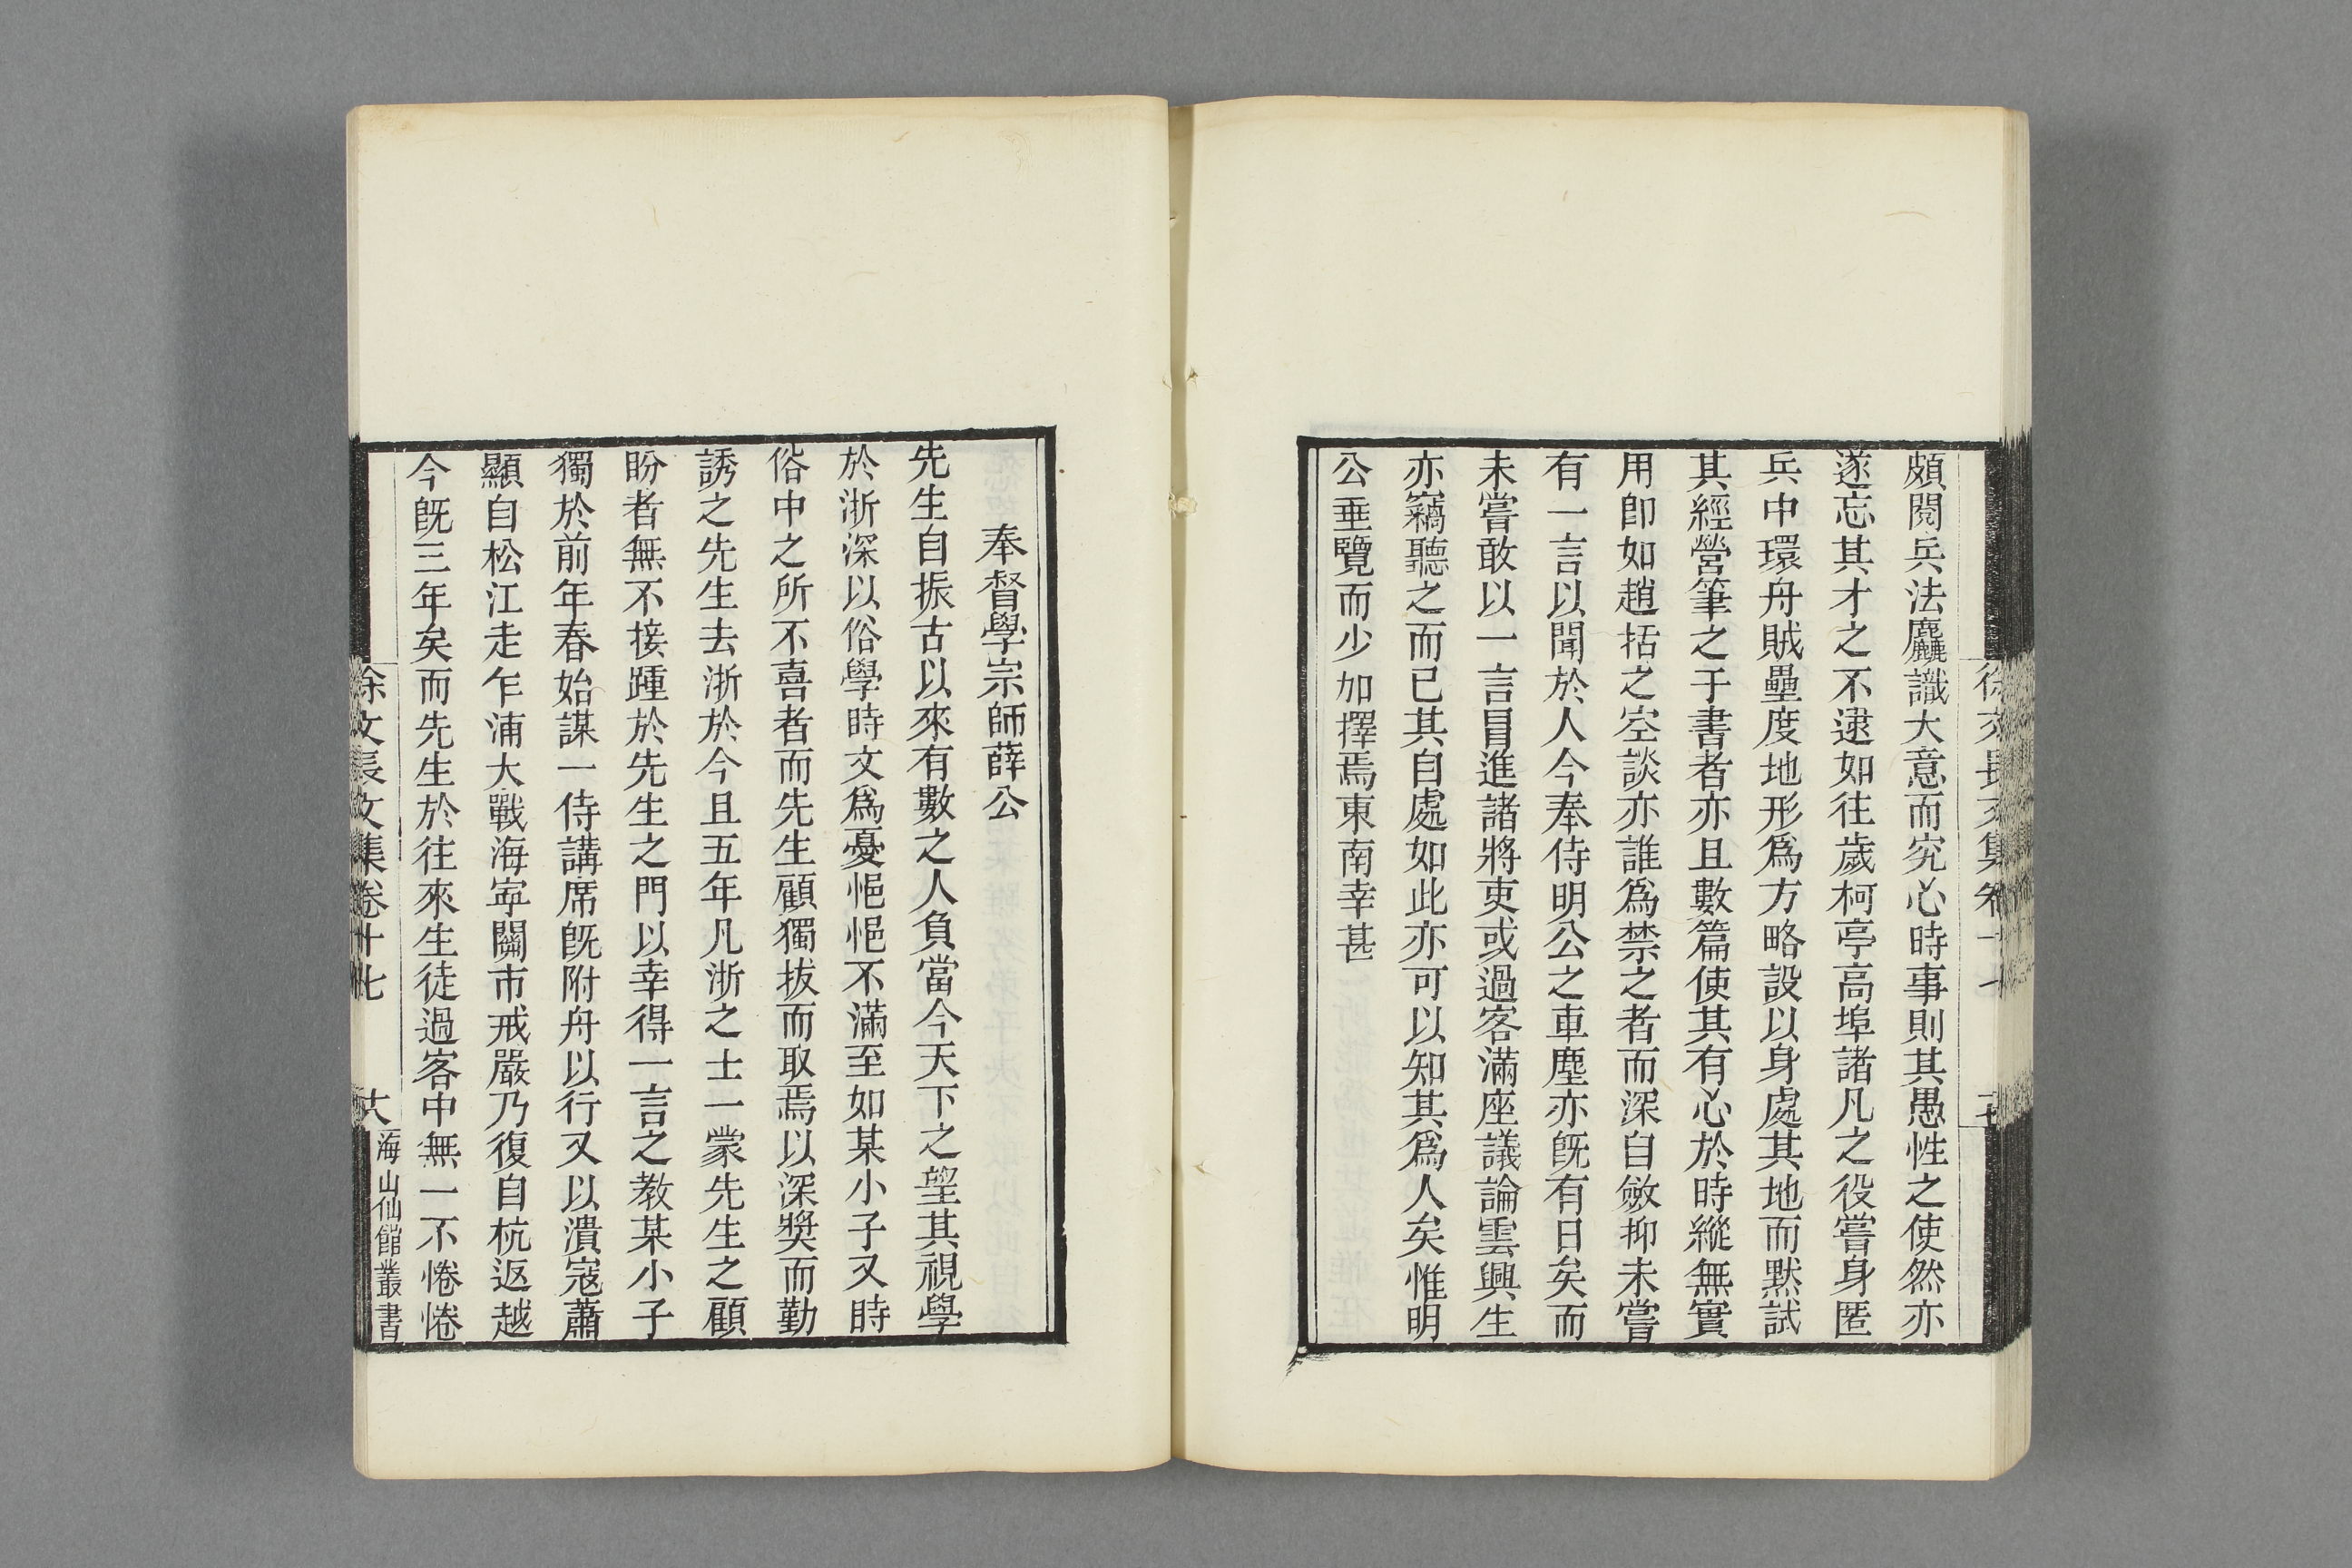 頗閱兵法麤識大意而究心時事則其愚性之使然亦
遂忘其才之不逮如往歲柯亭高埠諸凡之役嘗身匿
兵中環舟賊壘度地形爲方略設以身處其地而默試
其經營筆之于書者亦且數篇使其有心於時縱無實
用卽如趙括之空談亦誰爲禁之者而深自斂抑未嘗
有一言以聞於人今奉侍明公之車塵亦旣有日矣而
未嘗敢以一言冒進諸將吏或過客滿座議論雲興生
亦竊聽之而已其自處如此亦可以知其爲人矣惟明
公垂覽而少加擇焉東南幸甚
奉督學宗師薛公
先生自振古以來有數之人負當今天下之望其視學
於浙深以俗學時文爲憂悒悒不滿至如某小子又時
俗中之所不喜者而先生顧獨拔而取焉以深獎而勤
誘之先生去浙於今且五年凡浙之士一蒙先生之顧
盼者無不接踵於先生之門以幸得一言之教某小子
獨於前年春始謀一侍講席旣附舟以行又以潰寇蕭
顯自松江走乍浦大戰海寧關市戒嚴乃復自杭返越
今旣三年矣而先生於往來生徒過客中無一不惓惓
徐文長文集卷十七
十八
海山仙館叢書